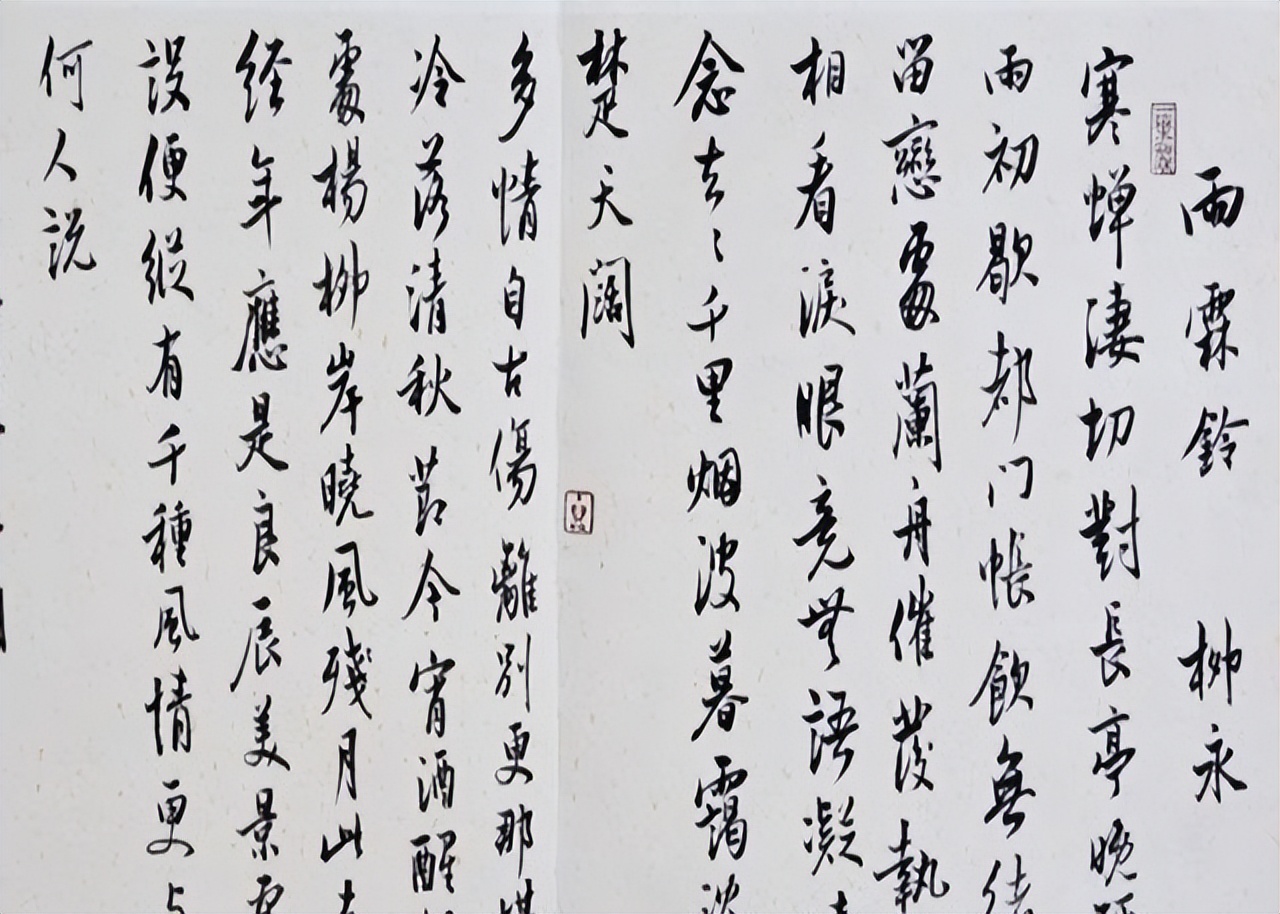 雨霖鈴 柳永
寒蝉淒切對長亭晚
雨初歇都门帳飲無
留戀處蘭舟催發執
相看淚眼竟無語凝
念去〻千里烟波暮靄
楚天闊
多情自古傷離別更那
冷落清秋節今宵酒醒
處楊柳岸曉風殘月此
経年應是良辰美景
設便縱有千種風情更
何人説